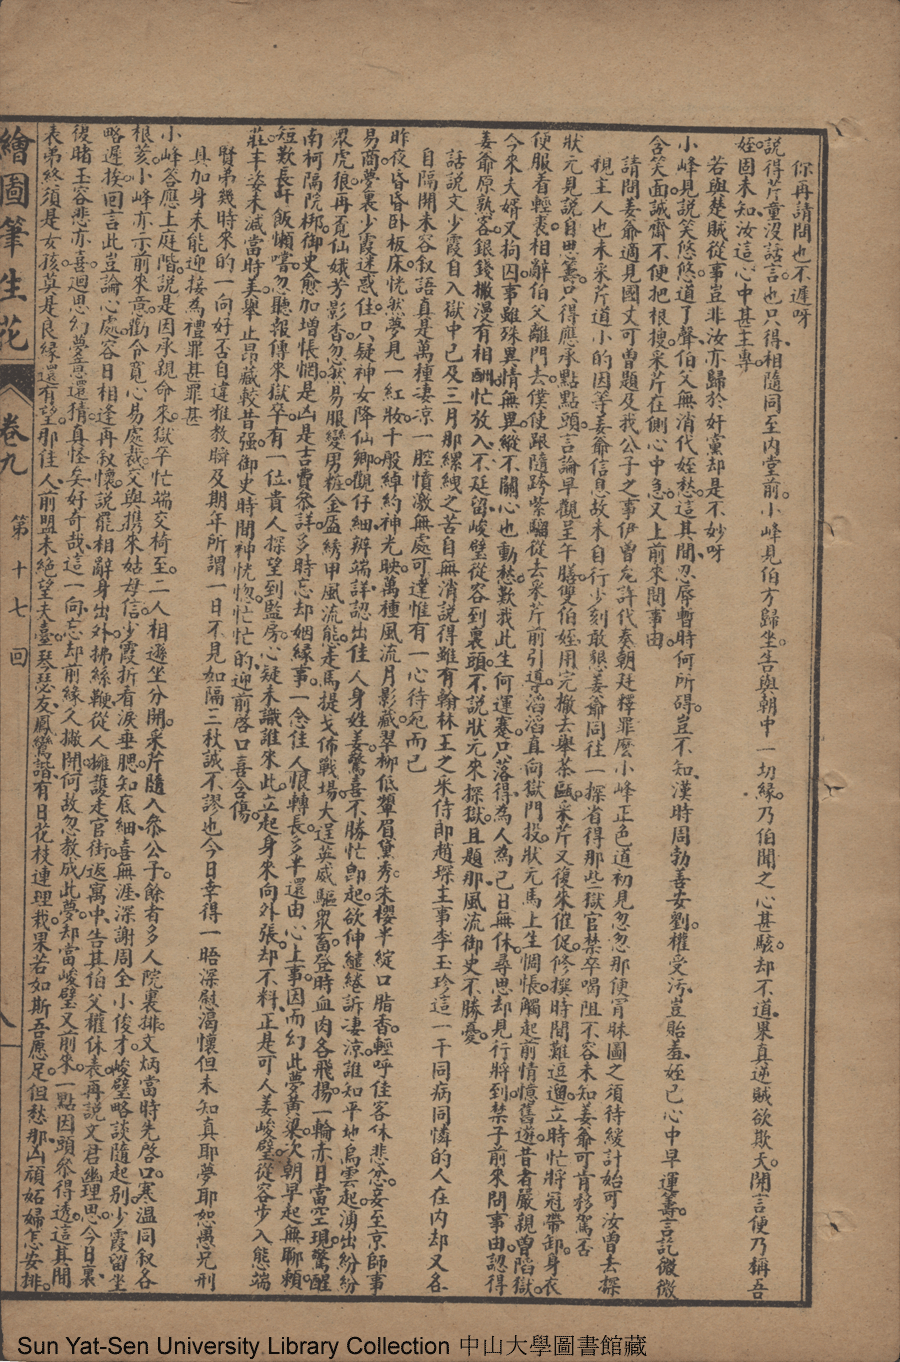 你再請問也不遲呀
說得芹童沒話言也只得相隨同至内堂前小峰見伯方歸坐告與朝中一切緣乃伯聞之心甚駭却不道果真逆賊欲欺天開言便乃稱吾
姪固未知汝這心中甚主專
若與楚賊從事豈非汝亦歸於奸黨却是不妙呀
小峰見說笑悠悠道了聲伯父無消代姪愁這其間忍辱暫時何所碍豈不知漢時周勃善安劉權受汚豈貽羞姪已心中早運籌言訖微微
含笑面誠齋不便把根搜采芹在側心中急又上前來問事由
請問姜爺適見國丈可曾題及我公子之事伊曾允許代奏朝廷釋罪麽小峰正色道初見忽忽那便冐昧圖之須待緩計始可汝曾去探
視主人也未采芹道小的因等姜爺信息故未自行少刻敢懇姜爺同往一探省得那些獄官禁卒喝阻不容未知姜爺可肯移駕否
狀元見說自思籌只得應承點點頭言論早觀呈午膳雙伯姪用完撤去舉茶甌采芹又復來催促修撰時間難逗遛立時忙將冠帶卸身衣
便服看輕裘相辭伯父離門去僕使跟隨跨紫騮從去采芹前引導滔滔直向獄門投狀元馬上生惆悵觸起前情憶舊遊昔者嚴親曽陷獄
今來夫婿又拘囚事雖殊異情無異縱不關心也動愁歎我此生何運蹇只落得為人為己日無休尋思却見行將到禁子前來問事由認得
姜爺原熟客銀錢撒漫有相酬忙放入不延留峻璧從容到裏頭不說狀元來探獄且題那風流御史不勝憂
話說文少霞自入獄中已及三月那縲絏之苦自無消說得雖有翰林王之采侍郎趙琛主事李玉珍這一干同病同憐的人在内却又各
自隔開未容叙語真是萬種凄涼一腔憤激無處可達惟有一心待死而已
昨夜昏昏卧板床恍然夢見一紅妝千般綽約神光映萬種風流月影藏翠柳低顰眉黛秀朱櫻半綻口脂香輕呼佳客休悲忿妾至京師事
易商夢裏少霞迷惑住只疑神女降仙鄉觀仔細辨端詳認出佳人身姓姜驚喜不勝忙卽起欲伸繾綣訴凄涼誰知平地烏雲起湧出紛紛
衆虎狼再覔仙娥芳影杳忽然易服變男糚金盔綉甲風流態走馬提戈佈戰塲大逞英威驅衆畜登時血肉各飛揚一輪赤日當空現驚醒
南柯隔院梆御史愈加增悵惘是凶是吉費叅詳多時忘却姻緣事一念佳人恨轉長多半還由心上事因而幻此夢黃粱次朝早起無聊賴
短歎長吁飯懶嘗忽聽報傳來獄卒有一位貴人探望到監房心疑未識誰來此立起身來向外張却不料正是可人姜峻璧從容步入態端
莊丰姿未減當時美舉止昂藏較昔强御史時間神恍惚忙忙的迎前啓口喜含傷
賢弟幾時來的一向好否自違雅教瞬及期年所謂一日不見如隔三秋誠不謬也今日幸得一晤深慰渴懷但未知真耶夢耶恕愚兄刑
具加身未能迎接為禮罪甚罪甚
小峰答應上庭階說是因承親命來獄卒忙端交椅至二人相遜坐分開采芹隨入叅公子餘者多人院裏排文炳當時先啓口寒温同叙各
根荄小峰亦示前來意勸令寬心易處裁父與携來姑母信少霞折看淚垂腮知底細喜無涯深謝周全小俊才峻璧略談隨起別少霞留坐
略遲挨回言此豈論心處容日相逢再叙懷說罷相辭身出外拂絲鞭從人擁護走官街返寓中告其伯父權休表再說文君幽理思今日裏
後睹玉容悲亦喜迴思幻夢意還猜真怪矣好奇哉這一向忘却前緣久撇開何故忽教成此夢却當峻璧又前來一點因頭叅得透這其間
表弟終須是女孩與是良緣還有望那佳人前盟未絕望夫臺琴瑟友鳳鸞諧有日花枝連理栽果若如斯吾愿足但愁那凶頑妬婦怎安排
繪圖筆生花
卷九
第十七回
八
Sun Yat-Sen University Library Collection 中山大學圖書館藏